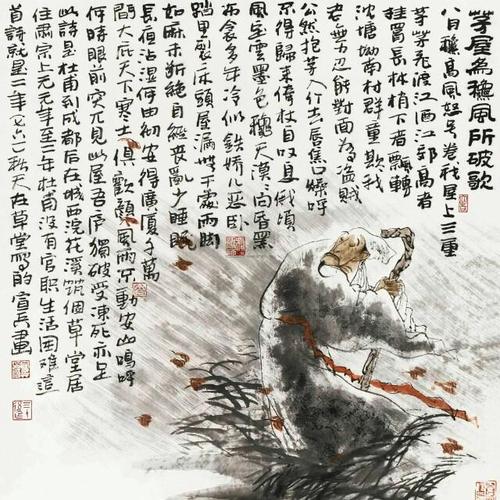 茅屋為穐風所破歌
八月穐高風怒号卷我屋上三重
茅茅飛渡江洒江郊高者
挂罥長林梢下者飄轉
沈塘坳南村群童欺我
老無力忍能對面為盗賊
公然抱茅入竹去唇焦口燥呼
不得歸来倚杖自叹息俄頃
風定雲墨色穐天漠漠向昏黑
布衾多年冷似鉄嬌儿惡卧
踏里裂床頭屋漏無干處雨脚
如麻未断絶自经喪亂少睡眠
長夜沾湿何由彻安得廣厦千萬
間大庇天下寒士俱歡顏風雨不動安山嗚呼
何時眼前突兀見此屋吾庐獨破受凍死亦足
此詩是杜甫到成都后在城西浣花溪筑個草堂居
住肅宗上元元年至二年杜甫没有官职生活困难這
首詩就是二年(七六一)秋天在草堂寫的